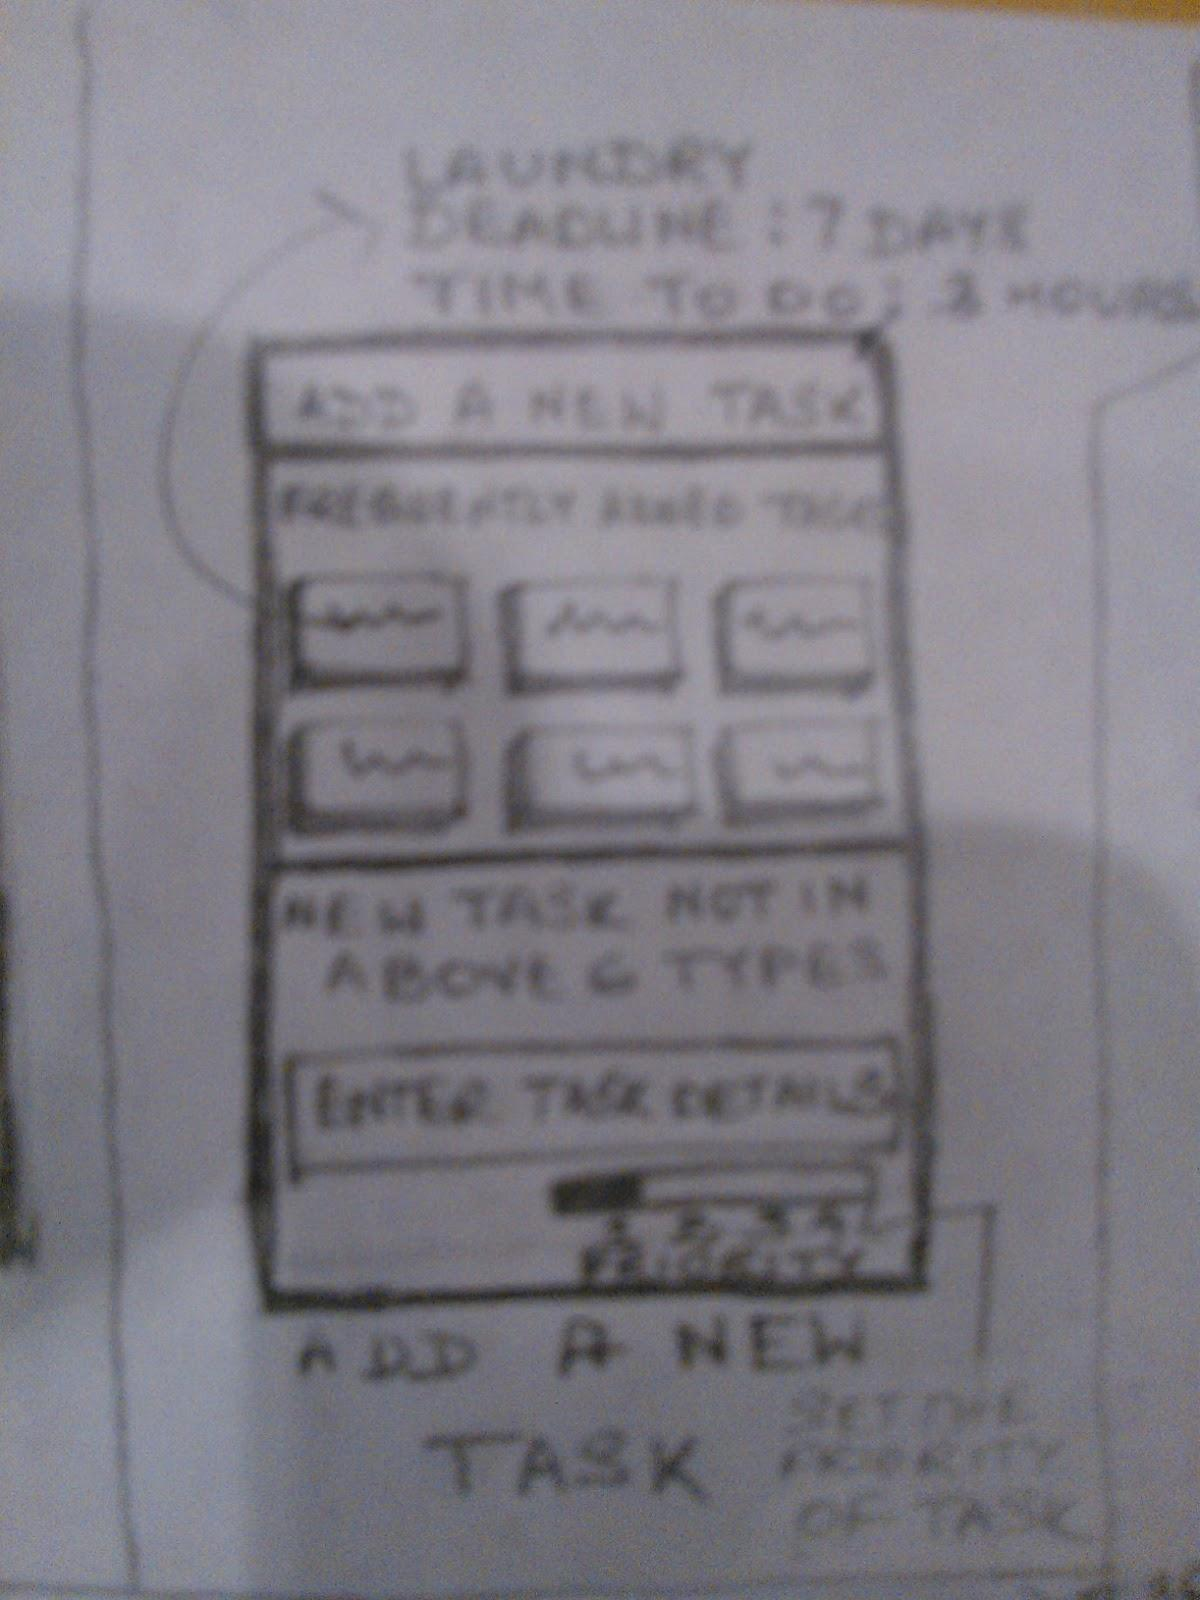 LAUNDRY
DEADLINE : 7 DAYS
TIME TO DO : HOURS
ADD A NEW TASK
FREQUENTLY ADDED TASK
NEW TASK NOT IN
ABOVE 6 TYPES
ENTER TASK DETAILS
1 2 3 4
PRIORITY
ADD A NEW
TASK
SET THE
PRIORITY
OF TASK